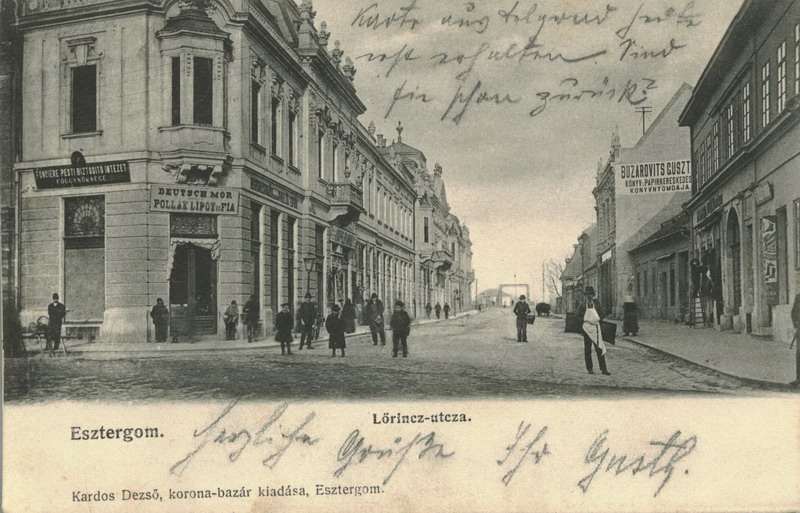 Karte aus Belgrad heute
erst erhalten. Sind
Sie schon zurück?
FONCIERE PESTI BIZTOSITÓ INTÉZET
FŐÜGYNÖKSÉGE
DEUTSCH MÓR
POLLÁK LIPÓT és FIA
BUZÁROVITS GUSZT
KÖNYV-PAPIRKERESKEDÉS
KÖNYVNYOMDÁJA
Esztergom.
Lőrincz-utcza.
Herzliche Grüße Ihr Gusty.
Kardos Dezső, korona-bazár kiadása, Esztergom.